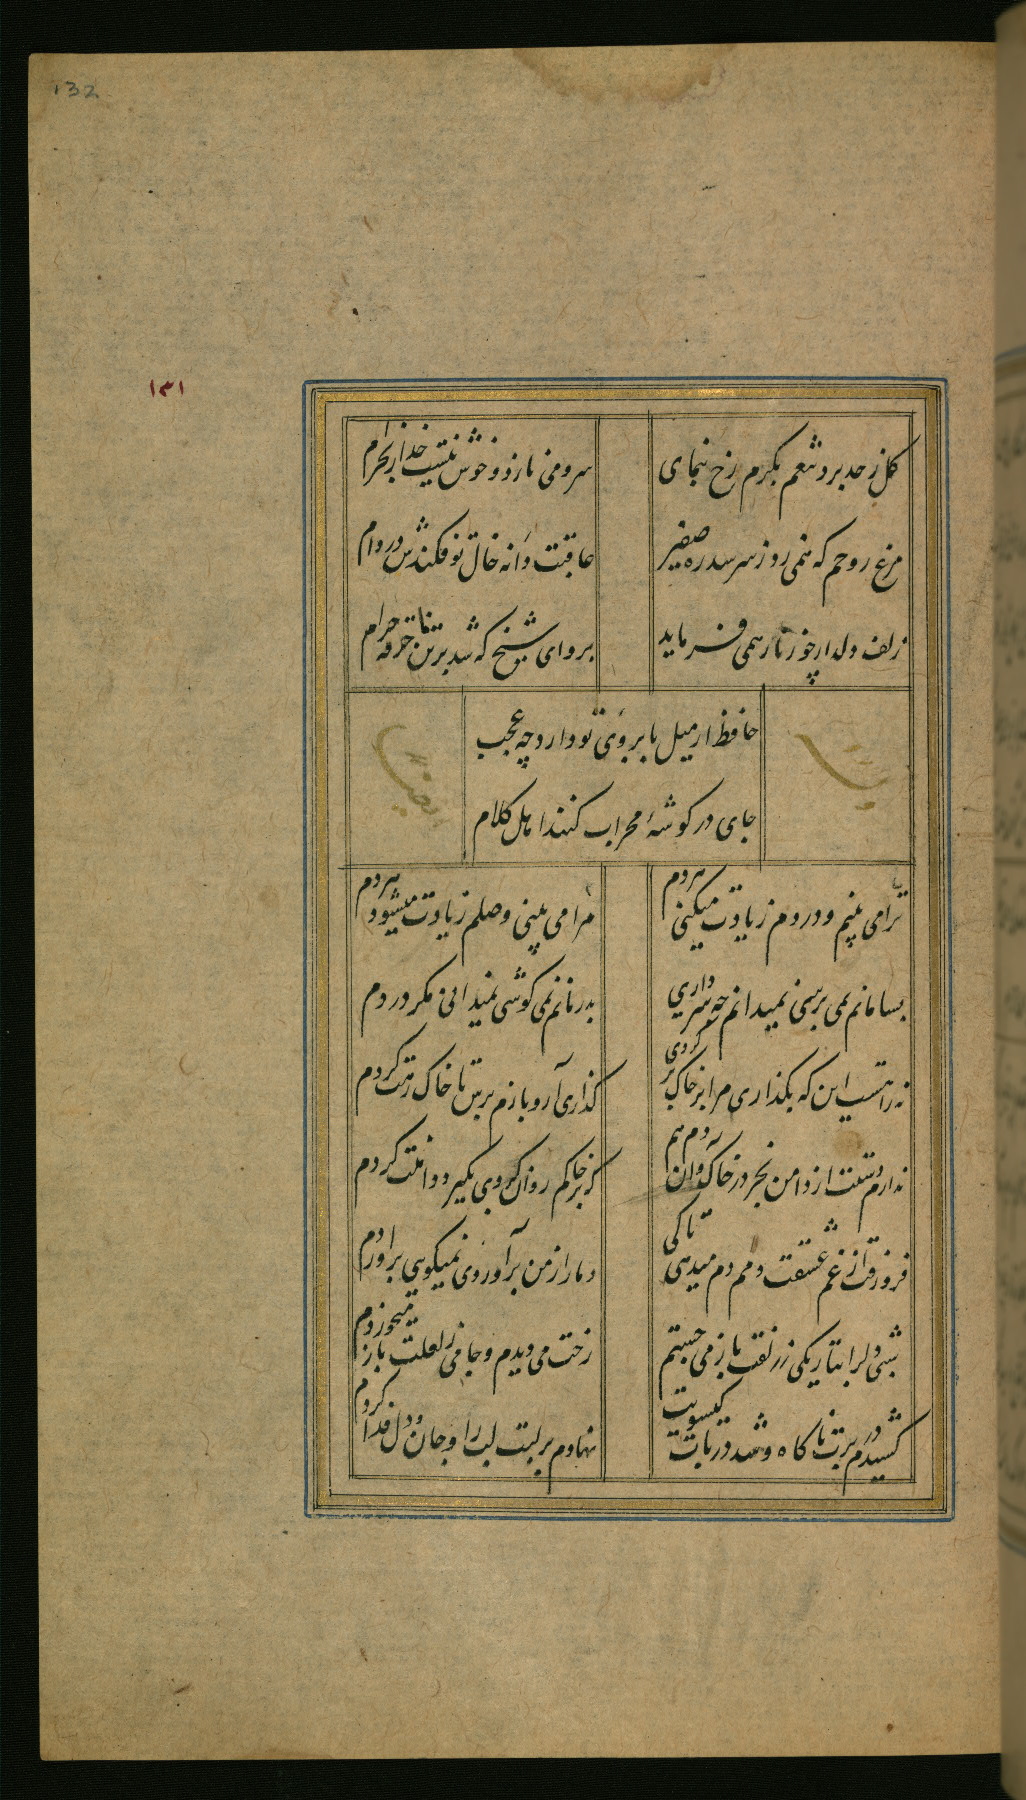 132
۱۳۱
گل ز حد برد تنعم بکرم رخ بنمای
سرو می نازد و خوش نیست خدا را بخرام
مرغ روحم که همی زد ز سر سدره صفیر
عاقبت دانه خال تو فکندش در دام
زلف دلدار چو زنار همی فرماید
برو ای شیخ که شد بر تن ما خرقه حرام
حافظ ار میل بابروی تو دارد چه عجب
جای در گوشهٔ محراب کنند اهل کلام
ترا می بینم و دردم زیادت میکنی هر دم
مرا می بینی و وصلم زیادت میشود هر دم
بسامانم نمی پرسی نمیدانم چه سر داری
بدرمانم نمی کوشی نمیدانی مگر دردم
نه راهست این که بگذاری مرا بر خاک بر کردی
گذاری آر و بازم پرس تا خاک رهت کردم
ندارم دستت از دامن بجز در خاک و آن دم هم
گر بر خاکم روان کردی بگیرد دامنت کردم
فرو رفت از غم عشقت دمم دم میدهی تا کی
دمار از من برآوردی نمیگویی برآوردم
شبی دل را بتاریکی ز زلفت باز می جستم
رخت می دیدم و جامی ز لعلت باز میخوردم
کشیدم در برت ناگاه و شد در تاب گیسویت
نهادم بر لبت لب را و جان و دل فدا کردم